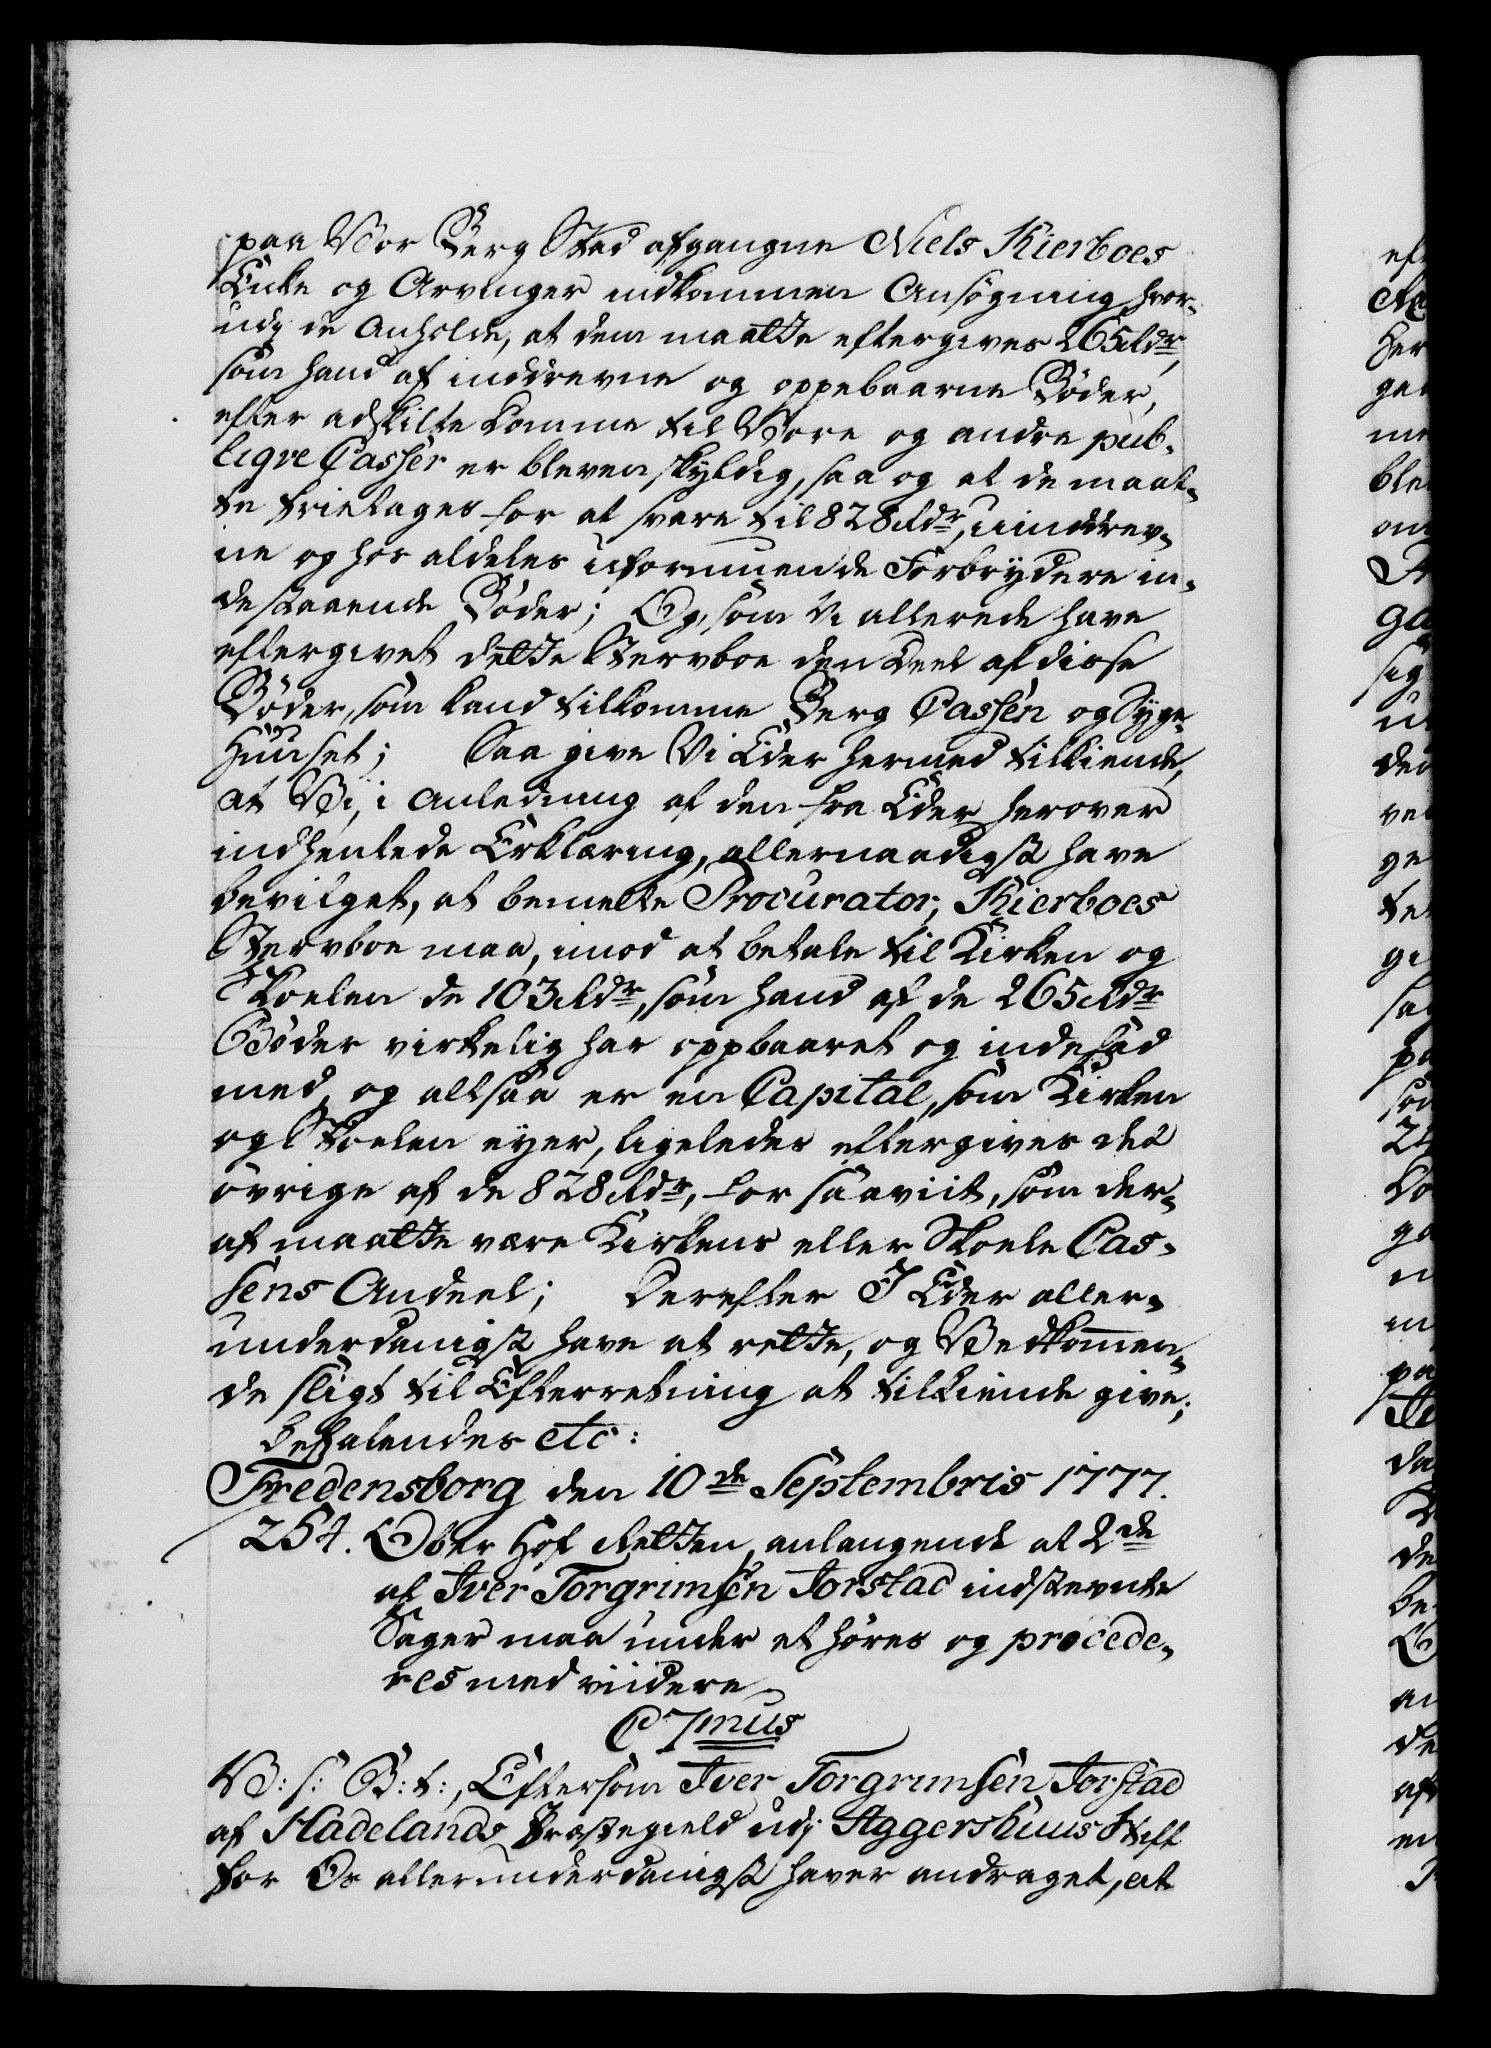 paa Vor Berg Stad afgangne Niels Kierboes
Enke og Arvinger indkommen Ansøgning, hvor-
udj de anholde, at dem maatte eftergives 265 Rdr,
som hand af inddrevne og oppebaarne Bøder,
efter adskilte Domme til Vore og andre pub-
liqve Casser er bleven skyldig, saa og at de maat-
te fritages for at svare til 828 Rdr, uinddrev-
ne og hos aldeles uformuende Forbrydere in-
destaaende Bøder; Og, som Vi allerede have
eftergivet dette Stervboe den Deel af disse
Bøder, som kand tilkomme Berg Cassen og Syge-
Huuset; Saa give Vi Eder hermed tilkiende,
at Vi, i Anledning af den fra Eder herover
indhentede Erklæring, allernaadigst have
bevilget, at bemelte Procurator, Kierboes
Stervboe maa, imod at betale til Kirken og
Skoelen de 103 Rdr, som hand af de 265 Rdr
Bøder virkelig har oppbaaret og indesad
med, og altsaa er en Capital, som Kirken
og Skoelen eyer, ligeledes eftergives det
øvrige af de 828 Rdr, for saaviit, som der-
af maatte være Kirkens eller Skoele Cas-
sens Andeel; Derefter I Eder aller-
underdanigst have at rette, og Vedkommen-
de sligt til Efterretning at tilkiende give;
Befalendes etc:
Fredensborg den 10de Septembris 1777.
254. Ober Hof Retten, anlangende at 2de
af Iver Torgrimsen Jorstad indstevnte
Sager maa under et høres og procede-
res med viidere
C 7mus
V: s: G: t:, Eftersom Iver Torgrimsen Jorstad
af Hadelands Præstegield udj Aggershuus Stift
for Os allerunderdanigst haver andraget, at